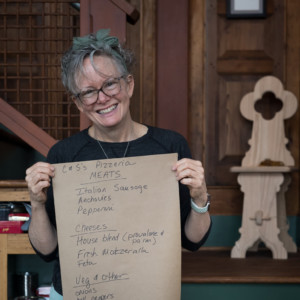 Cass Pizzeria
MEATS
Italian Sausage
Anchovies
Pepperoni
CHEESES
House blend (provolone &
Fresh Mozzarella
Feta
Veg & other
onions
peppers